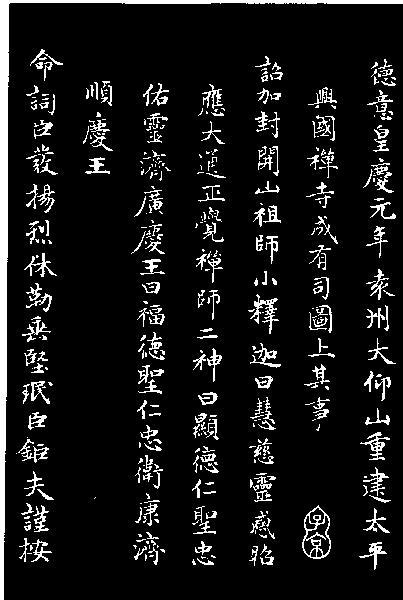 德意皇慶元年袁州大仰山重建太平
興國禪寺成有司圖上其事
詔加封開山祖師小釋迦曰慧慈靈感昭
應大通正覺禪師二神曰顯德仁聖忠
佑靈濟廣慶王曰福德聖仁忠衛康濟
順慶王
命詞臣發揚烈休勒垂堅珉臣鉅夫謹按